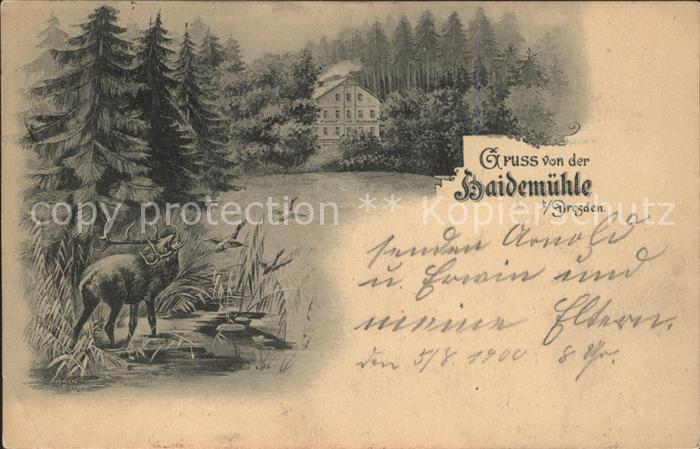 Gruss von der
Haidemühle
b/Dresden.
copyright protection ** Kopierschutz
senden Arnold
u. Erwin und
meine Eltern.
den 5/8. 1900. 8 Uhr.